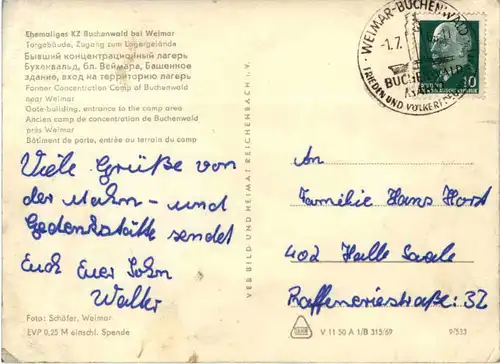 Ehemaliges KZ Buchenwald bei Weimar
Torgebäude, Zugang zum Lagergelände
Бывший концентрационный лагерь
Бухенвальд, бл. Веймара, Башенное
здание, вход на территорию лагерь
Former Concentration Camp of Buchenwald
near Weimar
Gate-building, entrance to the camp area
Ancien camp de concentration de Buchenwald
près Weimar
Bâtiment de porte, entrée au terrain du camp
Viele Grüße von
der Mahn- und
Gedenkstätte sendet
Euch Euer Sohn
Walter
Foto: Schäfer, Weimar
EVP 0,25 M einschl. Spende
VEB BILD UND HEIMAT REICHENBACH i. V.
WEIMAR-BUCHENWALD
-1.7.
BUCHENWALD
MAHNT
FRIEDEN UND VÖLKER
10
An
Familie Hans Horst
402 Halle Saale
Raffineriestraße: 32
V 11 50 A 1/B 315/69
9/533